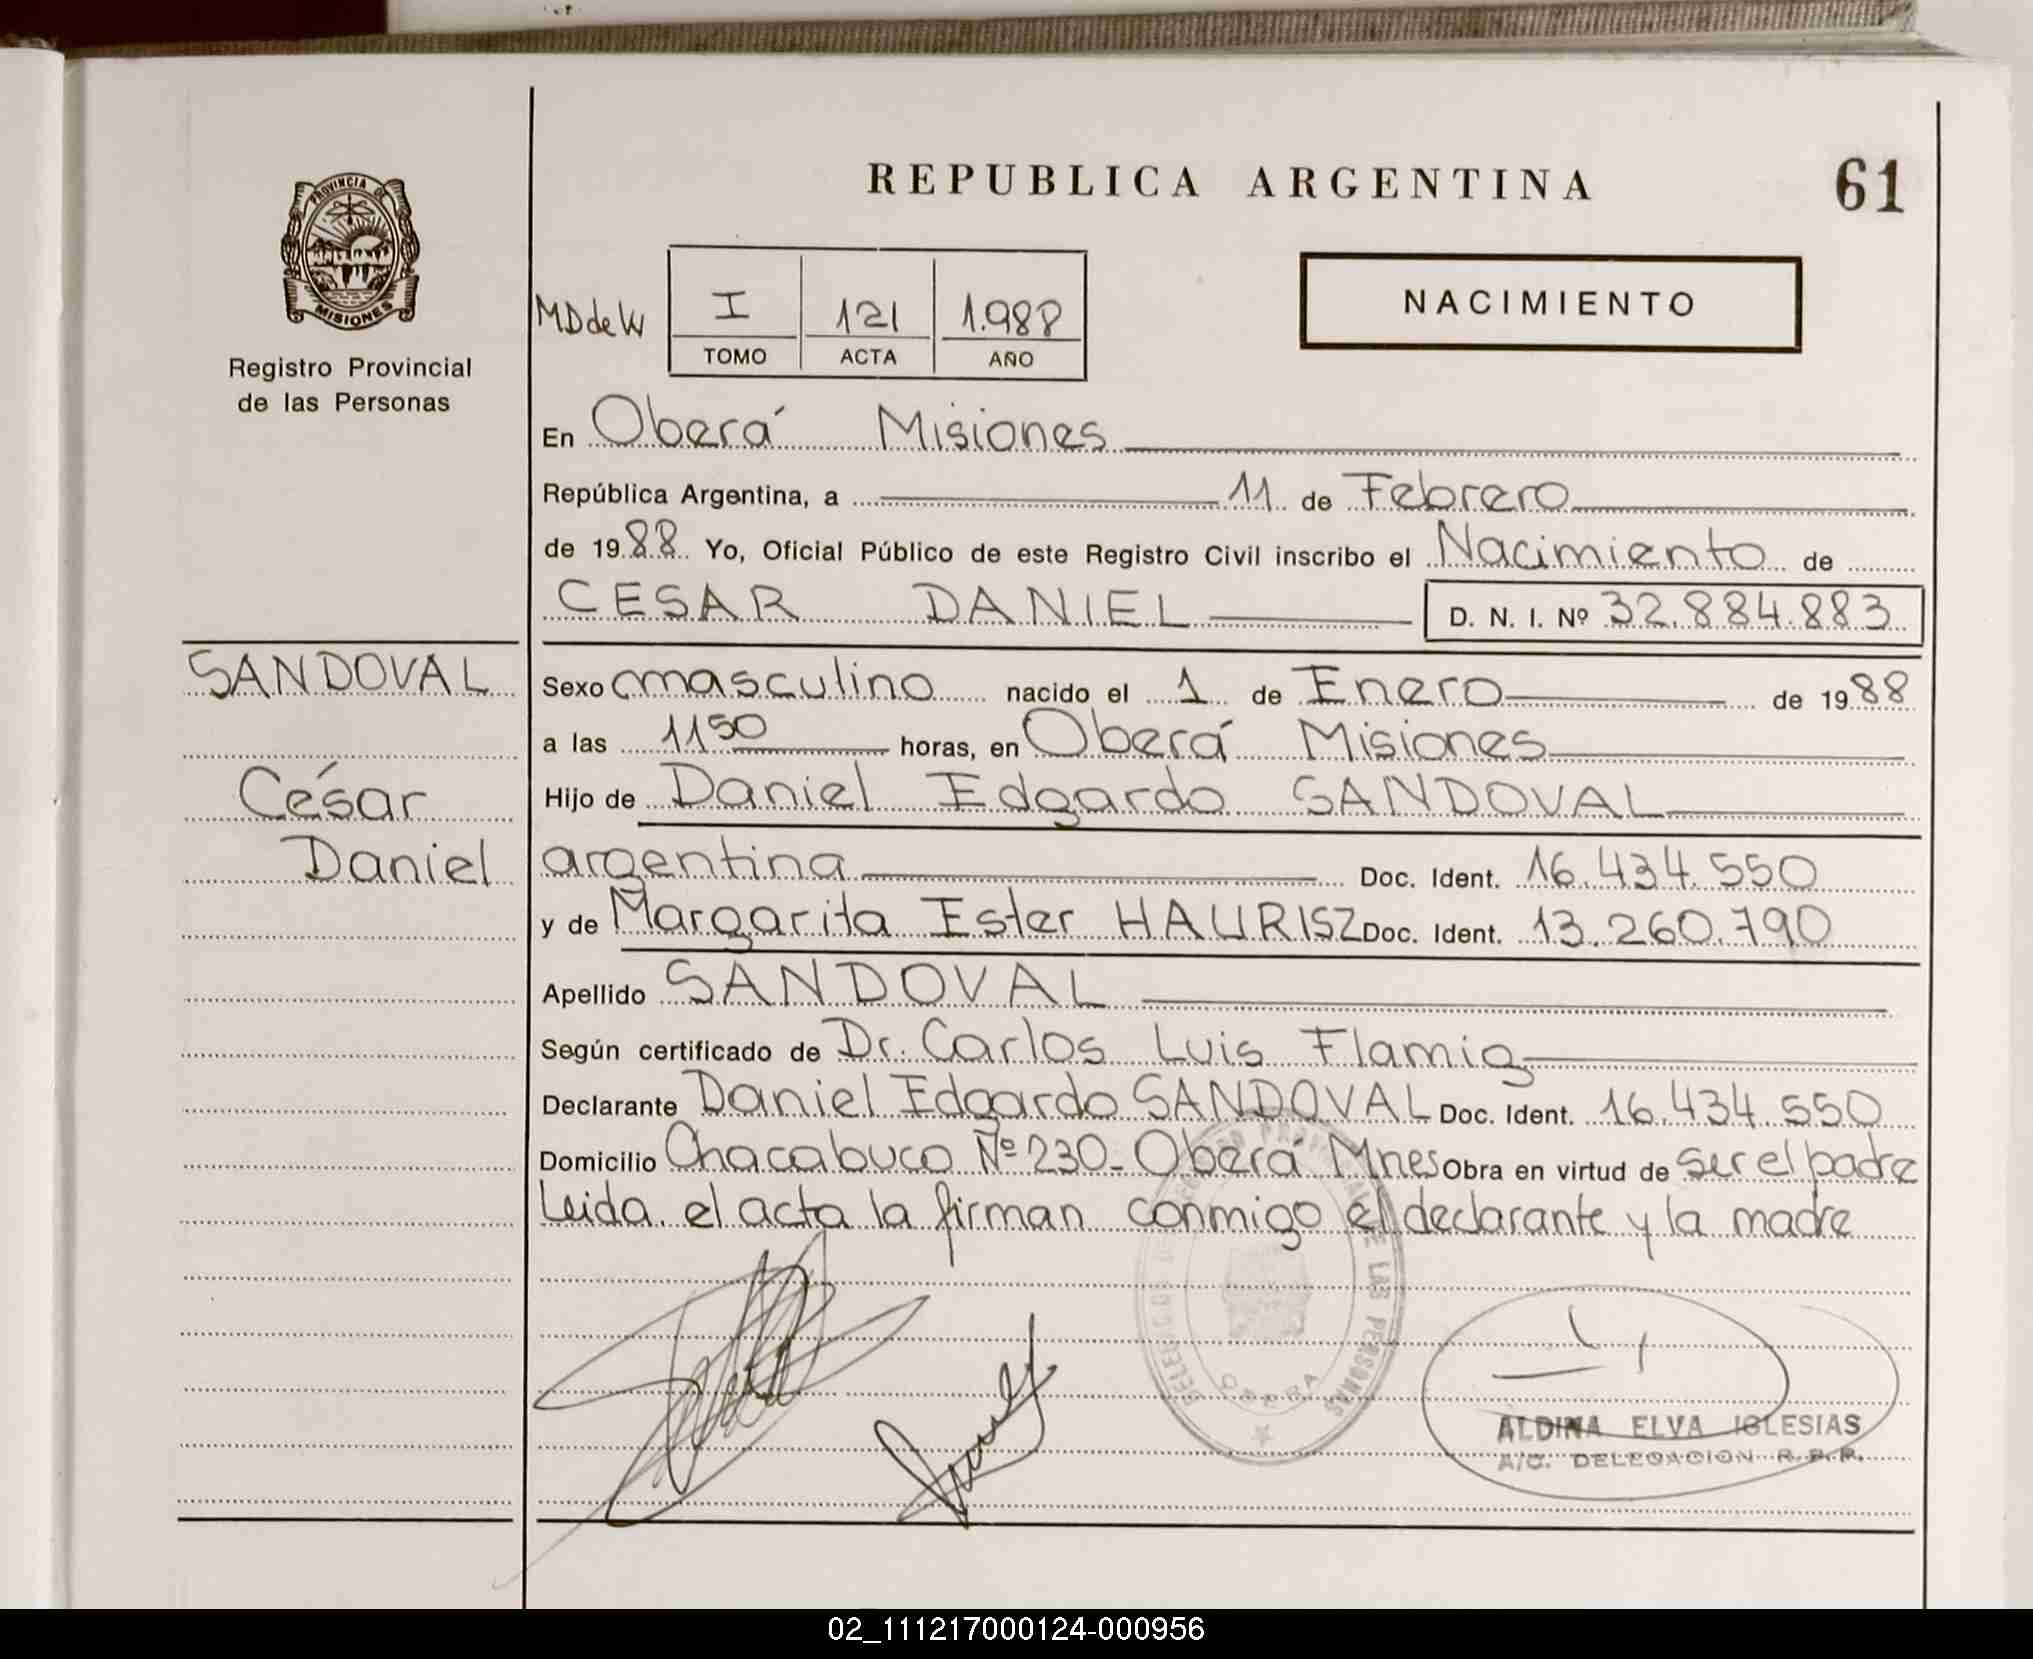 REPUBLICA ARGENTINA
61
PROVINCIA DE
MISIONES
Registro Provincial
de las Personas
MDdeW
I
121
1.988
TOMO
ACTA
AÑO
NACIMIENTO
En Oberá Misiones
República Argentina, a 11 de Febrero
de 1988 Yo, Oficial Público de este Registro Civil inscribo el Nacimiento de
CESAR DANIEL D. N. I. Nº 32.884.883
SANDOVAL
César
Daniel
Sexo masculino nacido el 1 de Enero de 1988
a las 1150 horas, en Oberá Misiones
Hijo de Daniel Edgardo SANDOVAL
argentina Doc. Ident. 16.434.550
y de Margarita Ester HAURISZ Doc. Ident. 13.260.790
Apellido SANDOVAL
Según certificado de Dr. Carlos Luis Flamig
Declarante Daniel Edgardo SANDOVAL Doc. Ident. 16.434.550
Domicilio Chacabuco Nº 230- Oberá Mnes Obra en virtud de ser el padre
Leida el acta la firman conmigo el declarante y la madre
OBERA
ALDINA ELVA IGLESIAS
A/C. DELEGACION R.P.P.
02_111217000124-000956